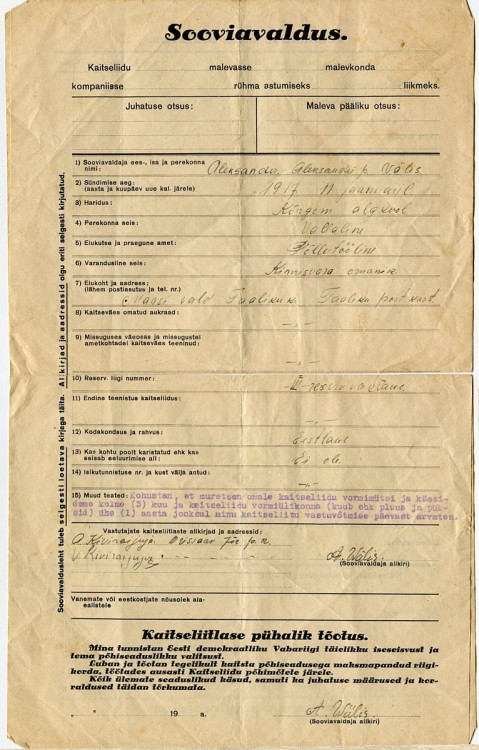 Sooviavaldus.
Kaitseliidu malevasse malevkonda
kompaniisse rühma astumiseks liikmeks.
Juhatuse otsus: Maleva pääliku otsus:
Aadressilehtede
1) Sooviavaldaja ees-, isa ja perekonna nimi: Aleksander Aleksandri p. Välis
2) Sündimise aeg: (aasta ja kuupäev uue kal. järele) 1917 11 jaanuaril
3) Haridus: Kõrgem algkool
4) Perekonna seis: Vallaline
5) Elukutse ja praegune amet: Põllutööline
6) Varandusline seis: Kinnisvara omanik
7) Elukoht ja aadress: (lähem postiasutus ja tel. nr.) vald
8) Kaitseväes omatud aukraad: -„-
9) Missuguses väeosas ja missugustel
ametkohtadel kaitseväes teeninud: -„-
10) Reserv. liigi number: II-reservväelane
11) Endine teenistus kaitseliidus: -„-
12) Kodakondsus ja rahvus: Eestlane
13) Kas kohtu poolt karistatud ehk kas
seisab eeluurimise all: Ei ole.
14) Isikutunnistuse nr. ja kust välja antud: -„-
15) Muud teated: Kohustan, et muretsen omale kaitseliidu vormimütsi ja käesi-
deme kolme (3) kuu ja kaitseliidu vormiülikonna (kuub ehk pluus ja pük-
sid) ühe (1) aasta jooksul minu kaitseliitu vastuvõtmise päevast arvates.
Vastutajate kaitseliitlaste alikirjad ja aadressid:
A. Kiviraijuja
Kiviraijuja A. Wälis.
(Sooviavaldaja alikiri)
Vanemate või eestkostjate nõusolek ala-
ealistele
Kaitseliitlase pühalik tõotus.
Mina tunnistan Eesti demokraatliku Vabariigi täielikku iseseisvust ja
tema põhiseaduslikku valitsust.
Luban ja tõotan tegelikult kaitsta põhiseadusega maksmapandud riigi-
korda, töötades ausasti Kaitseliidu põhimõtete järele.
Kõik ülemate seaduslikud käsud, samuti ka juhatuse määrused ja kor-
raldused täidan tõrkumata.
„ “ 19 a. A. Wälis.
(Sooviavaldaja alikiri)
Sooviavaldusleht tuleb selgesti loetava kirjaga täita. Alikirjad ja aadressid olgu eriti selgesti kirjutatud.